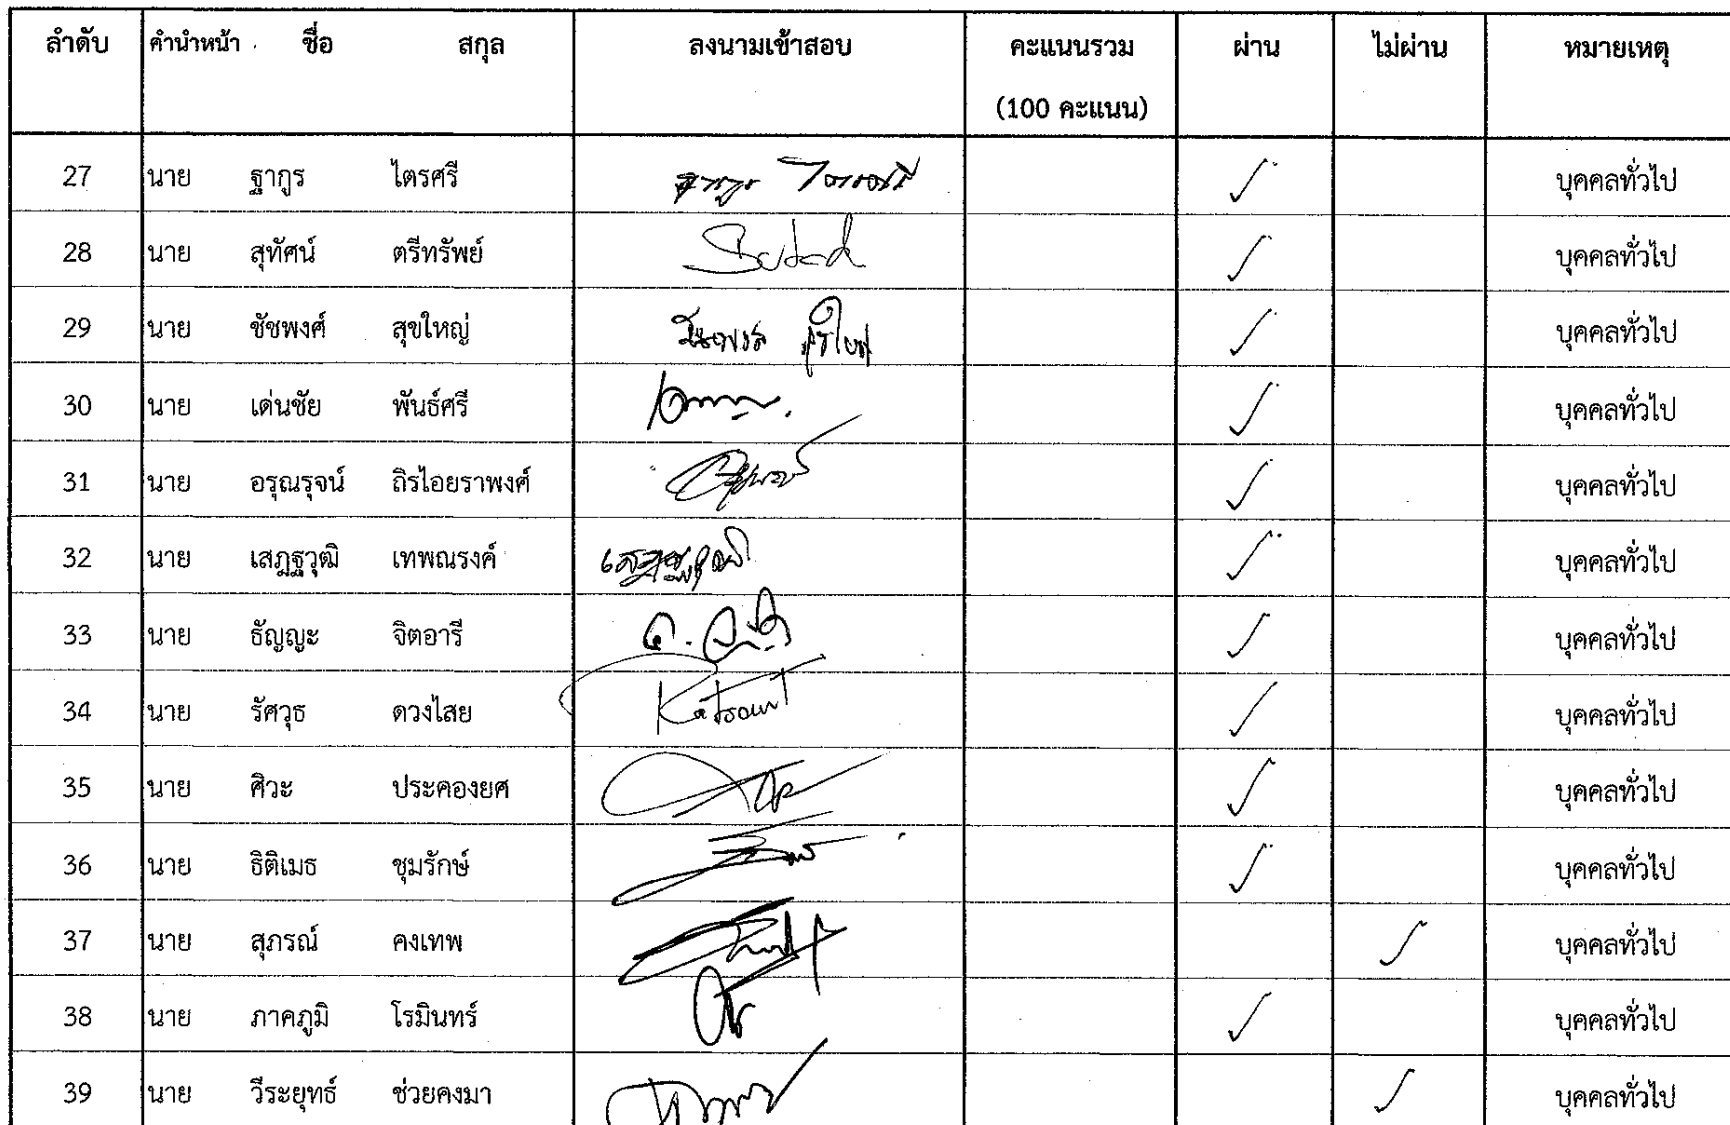 ลำดับ คำนำหน้า ชื่อ สกุล ลงนามเข้าสอบ คะแนนรวม ผ่าน ไม่ผ่าน หมายเหตุ
(100 คะแนน)
27 นาย ฐากูร ไตรศรี ฐากูร ไตรศรี ✓ บุคคลทั่วไป
28 นาย สุทัศน์ ตรีทรัพย์ ✓ บุคคลทั่วไป
29 นาย ชัชพงศ์ สุขใหญ่ ✓ บุคคลทั่วไป
30 นาย เด่นชัย พันธ์ศรี ✓ บุคคลทั่วไป
31 นาย อรุณรุจน์ ถิรไอยราพงศ์ ✓ บุคคลทั่วไป
32 นาย เสฎฐวุฒิ เทพณรงค์ เสฎฐวุฒิ ✓ บุคคลทั่วไป
33 นาย ธัญญะ จิตอารี ✓ บุคคลทั่วไป
34 นาย รัศวุธ ดวงไสย ✓ บุคคลทั่วไป
35 นาย ศิวะ ประคองยศ ✓ บุคคลทั่วไป
36 นาย ธิติเมธ ชุมรักษ์ ✓ บุคคลทั่วไป
37 นาย สุภรณ์ คงเทพ ✓ บุคคลทั่วไป
38 นาย ภาคภูมิ โรมินทร์ ✓ บุคคลทั่วไป
39 นาย วีระยุทธ์ ช่วยคงมา ✓ บุคคลทั่วไป